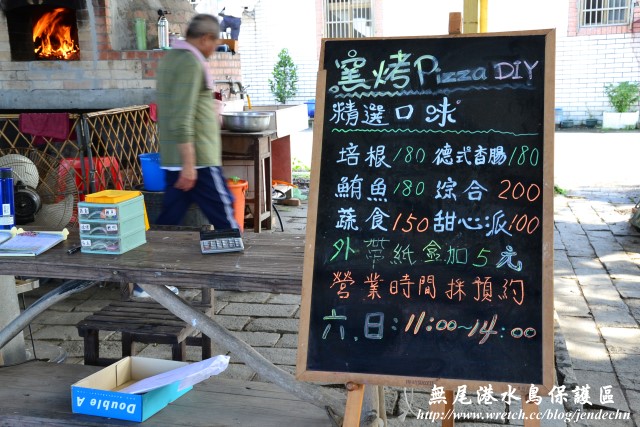 窯烤Pizza DIY
精選口味
培根180 德式香腸180
鮪魚180 綜合200
蔬食150 甜心派100
外帶紙盒加5元
營業時間採預約
六.日:11:00~14:00
Double A
無尾港水鳥保護區
http://www.wretch.cc/blog/jendechn